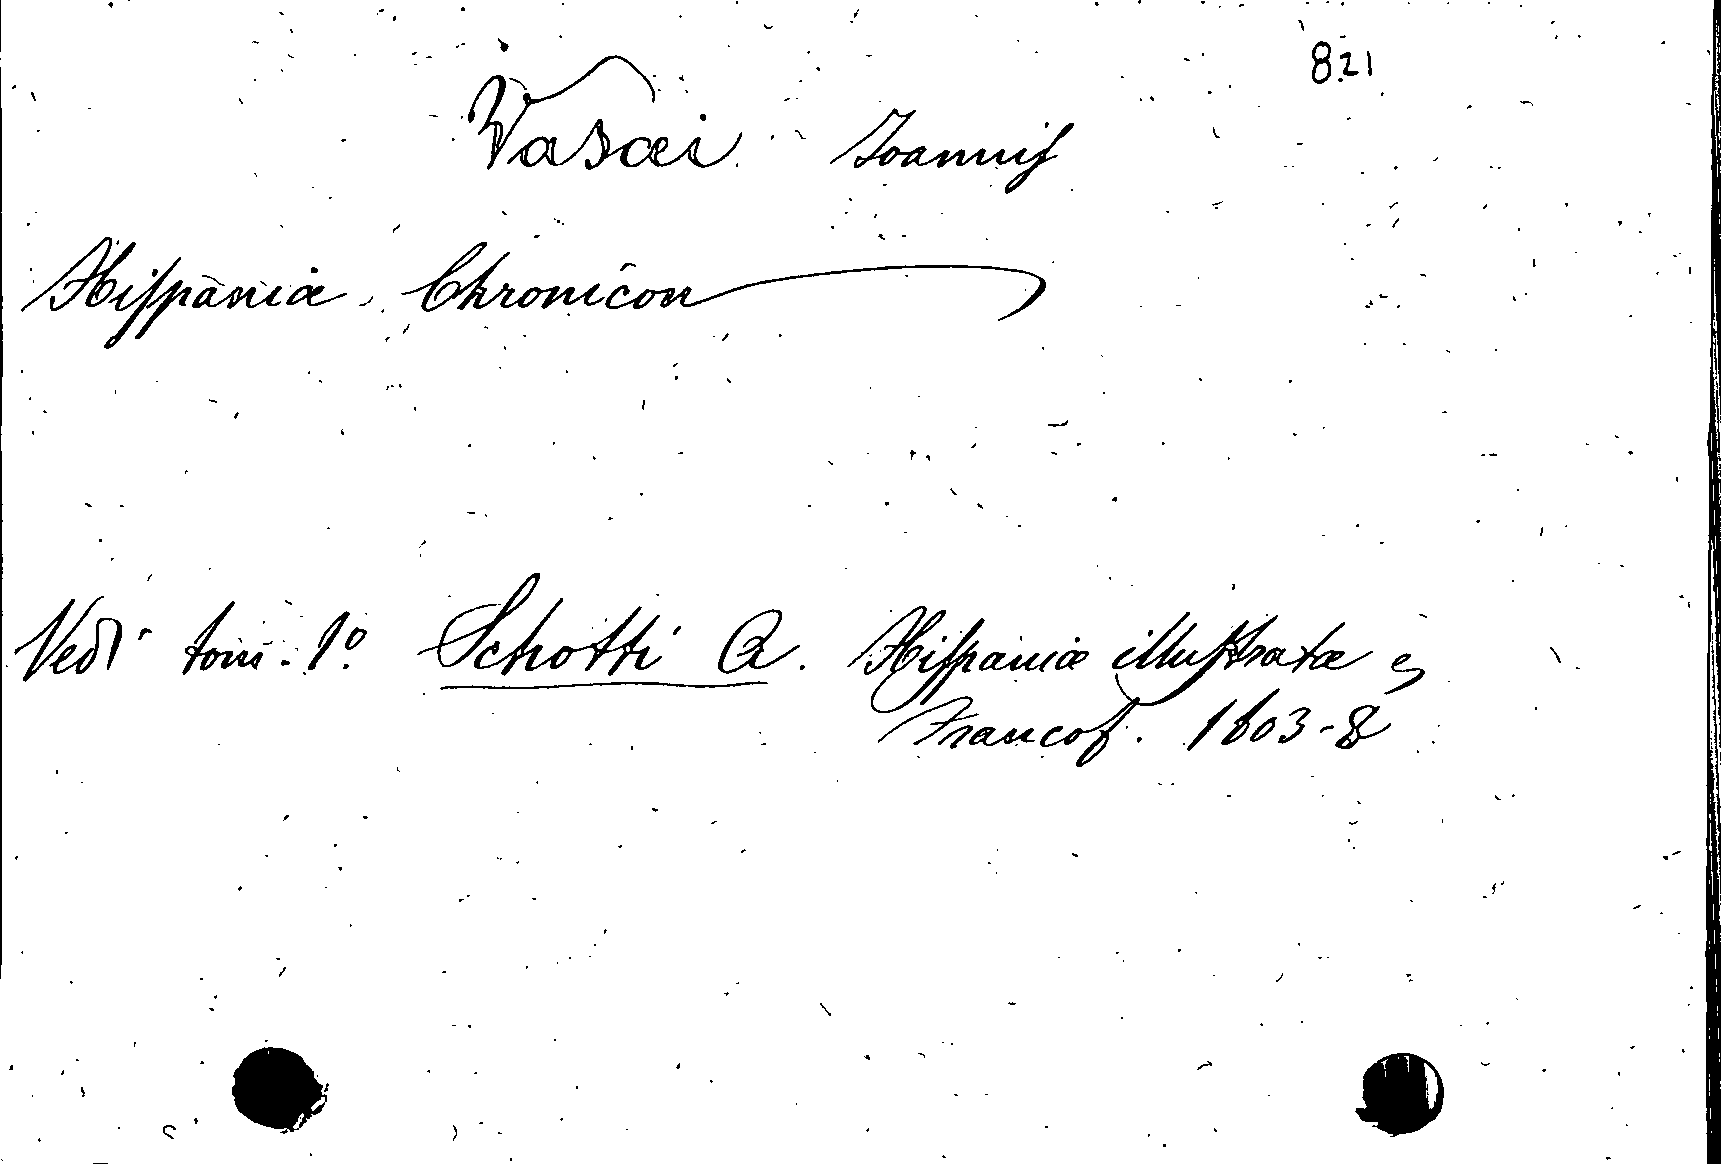 821
Vasæi Joannis
Hispaniæ Chronicon
Vedi tom. 1º. Schotti A. Hispaniæ illustratæ
Francof. 1603-8